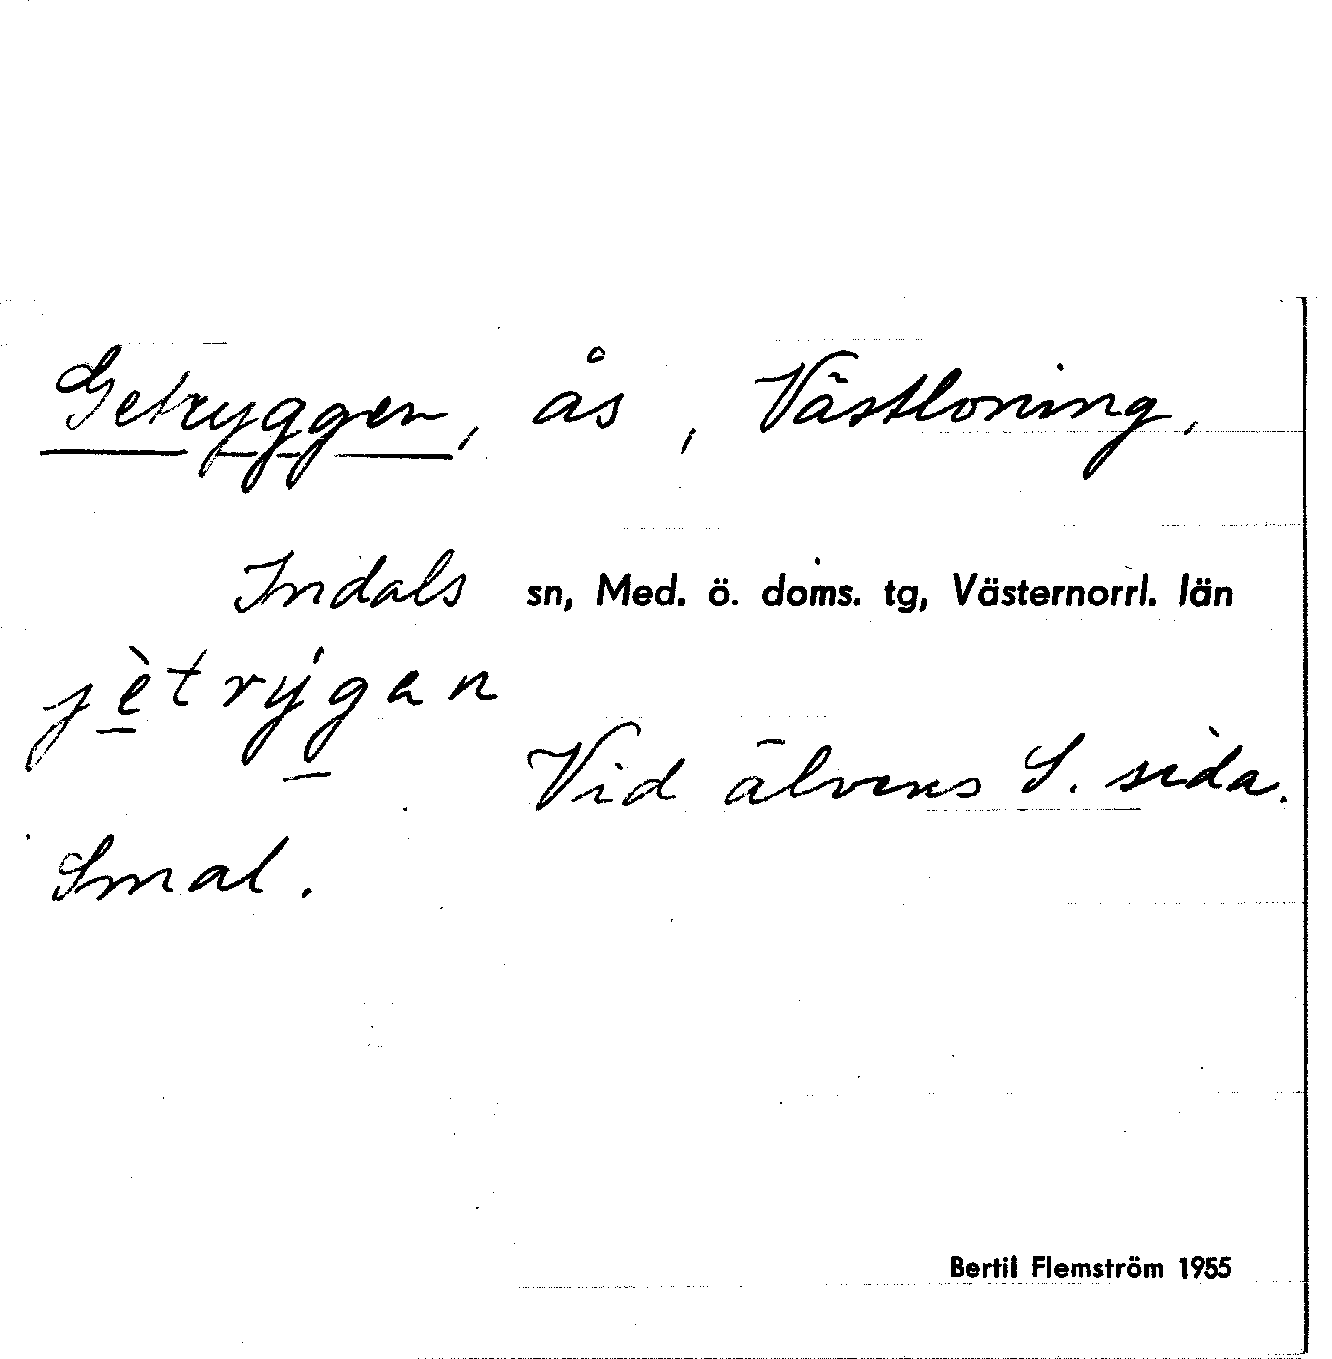 Getryggen, ås, Västloning,
Indals sn, Med. ö. doms. tg, Västernorrl. län
jètrýgan
Vid älvens S. sida.
Smal.
Bertil Flemström 1955